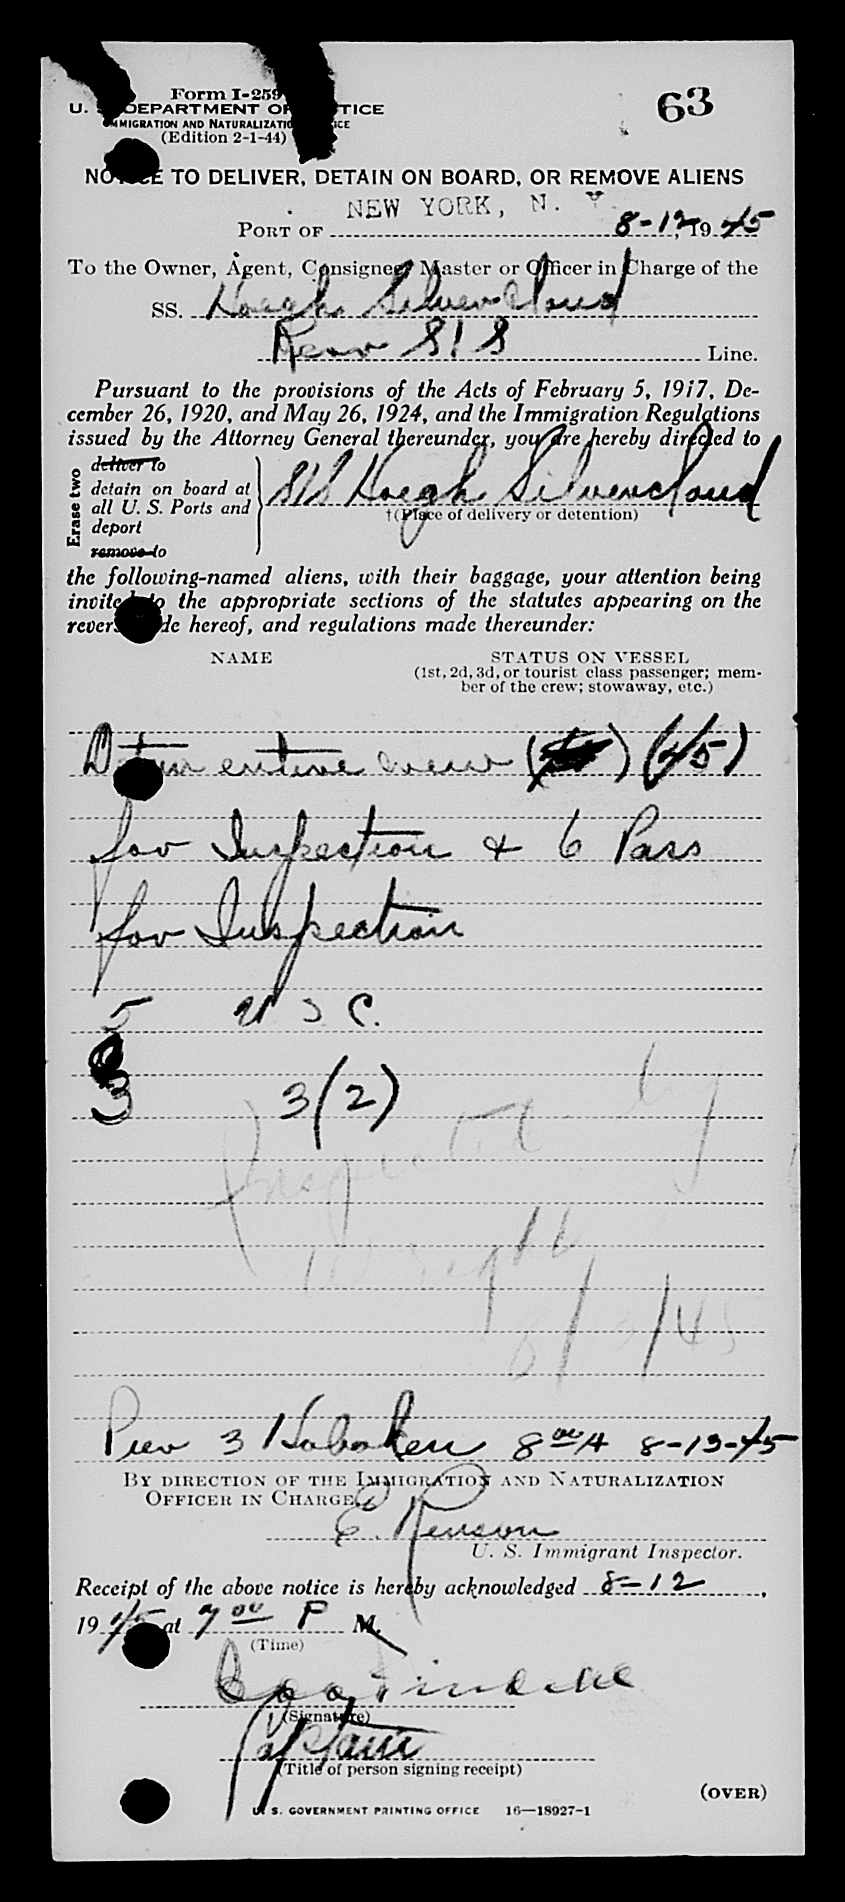 Form I-259
U. S. DEPARTMENT OF JUSTICE
IMMIGRATION AND NATURALIZATION SERVICE
(Edition 2-1-44)
63
NOTICE TO DELIVER, DETAIN ON BOARD, OR REMOVE ALIENS
NEW YORK, N. Y.
PORT OF 8-12, 1945
To the Owner, Agent, Consignee, Master or Officer in Charge of the
SS. Hoegh Silvercloud
Kerr SIS Line.
Pursuant to the provisions of the Acts of February 5, 1917, De-
cember 26, 1920, and May 26, 1924, and the Immigration Regulations
issued by the Attorney General thereunder, you are hereby directed to
Erase two
deliver to
detain on board at
all U. S. Ports and
deport
remove to
S/S Hoegh Silvercloud
†(Place of delivery or detention)
the following-named aliens, with their baggage, your attention being
invited to the appropriate sections of the statutes appearing on the
reverse side hereof, and regulations made thereunder:
NAME STATUS ON VESSEL
(1st, 2d, 3d, or tourist class passenger; mem-
ber of the crew; stowaway, etc.)
Detain entire crew (45)
for Inspection & 6 Pass
for Inspection
5 USC.
3 3(2)
Inspected by
Wright
8/13/45
Pier 3 Hoboken 8 00 A 8-13-45
BY DIRECTION OF THE IMMIGRATION AND NATURALIZATION
OFFICER IN CHARGE.
E. Renson
U. S. Immigrant Inspector.
Receipt of the above notice is hereby acknowledged 8-12,
1945 at 7 00 P M.
(Time)
(Signature)
Captain
(Title of person signing receipt)
(OVER)
U. S. GOVERNMENT PRINTING OFFICE 16—18927-1